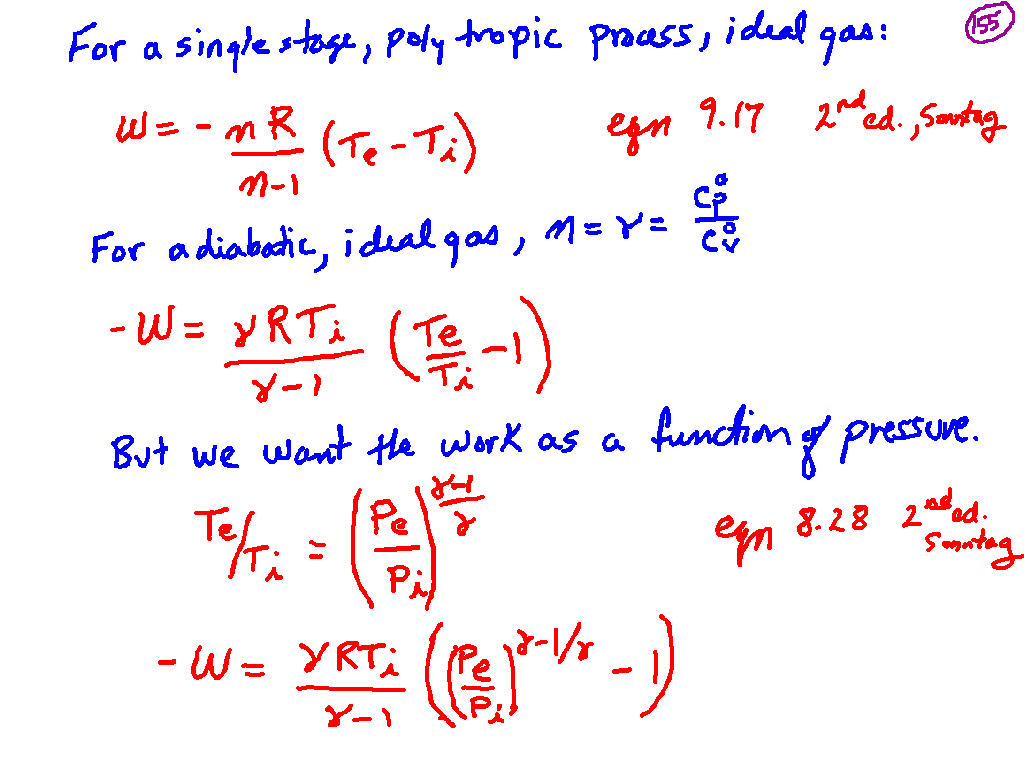 For a single stage, polytropic process, ideal gas: 155
W = - nR/n-1 (Te - Ti) eqn 9.17 2nd ed., Sonntag
For adiabatic, ideal gas, n = γ = Cp°/Cv°
-W = γRTi/γ-1 (Te/Ti - 1)
But we want the work as a function of pressure.
Te/Ti = (Pe/Pi)^γ-1/γ eqn 8.28 2nd ed. Sonntag
-W = γRTi/γ-1 ((Pe/Pi)^γ-1/γ - 1)